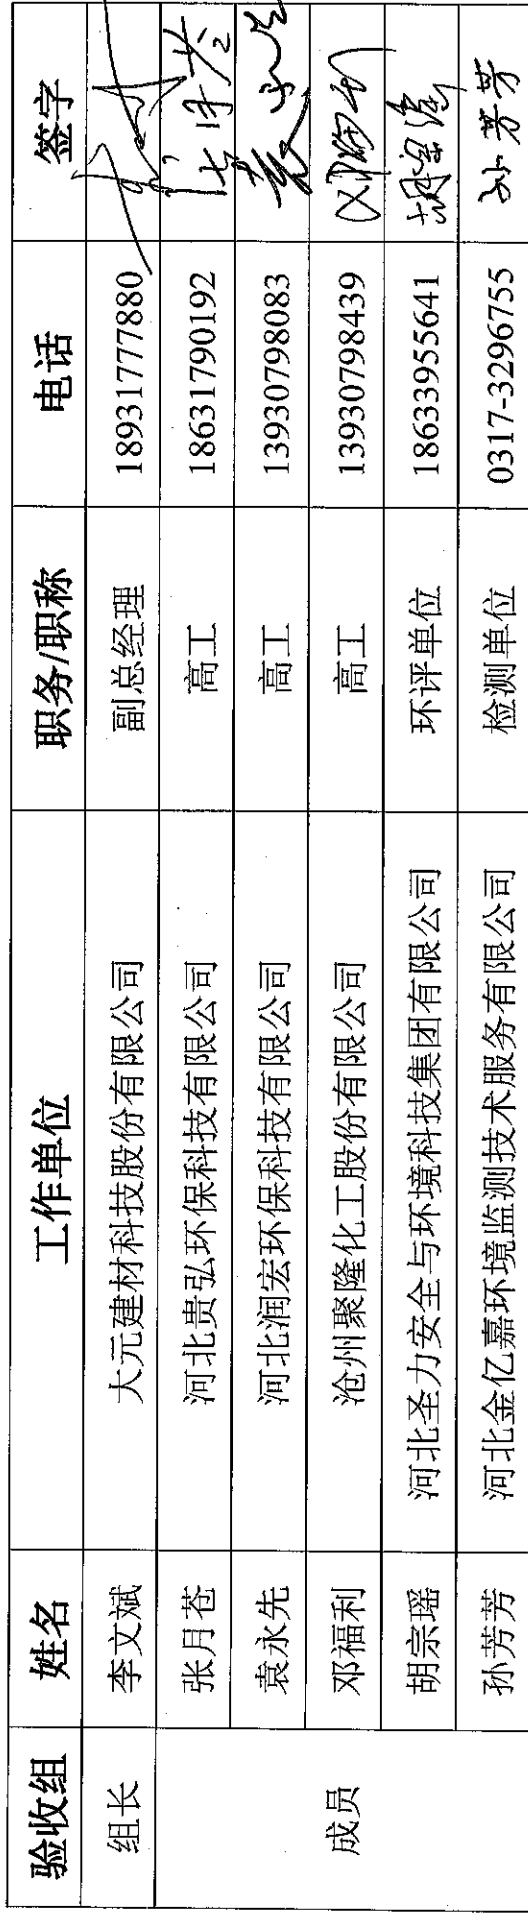 验收组 姓名 工作单位 职务/职称 电话 签字
组长 李文斌 大元建材科技股份有限公司 副总经理 18931777880
成员 张月苍 河北贵弘环保科技有限公司 高工 18631790192 张月苍
袁永先 河北润宏环保科技有限公司 高工 13930798083
邓福利 沧州聚隆化工股份有限公司 高工 13930798439 邓福利
胡宗瑶 河北圣力安全与环境科技集团有限公司 环评单位 18633955641 胡宗瑶
孙芳芳 河北金亿嘉环境监测技术服务有限公司 检测单位 0317-3296755 孙芳芳